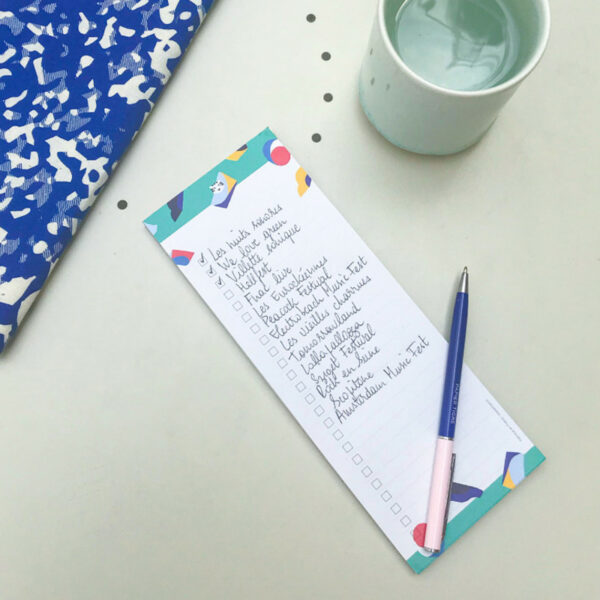 Les nuits sonores
We love green
Villette sonique
Hellfest
Fnac live
Les Eurockéennes
Peacock Festival
Electrobeach Music Fest
Les vieilles charrues
Tomorrowland
Lollapalooza
Sziget Festival
Rock en Seine
Amsterdam Music Fest
PAPIER TIGRE